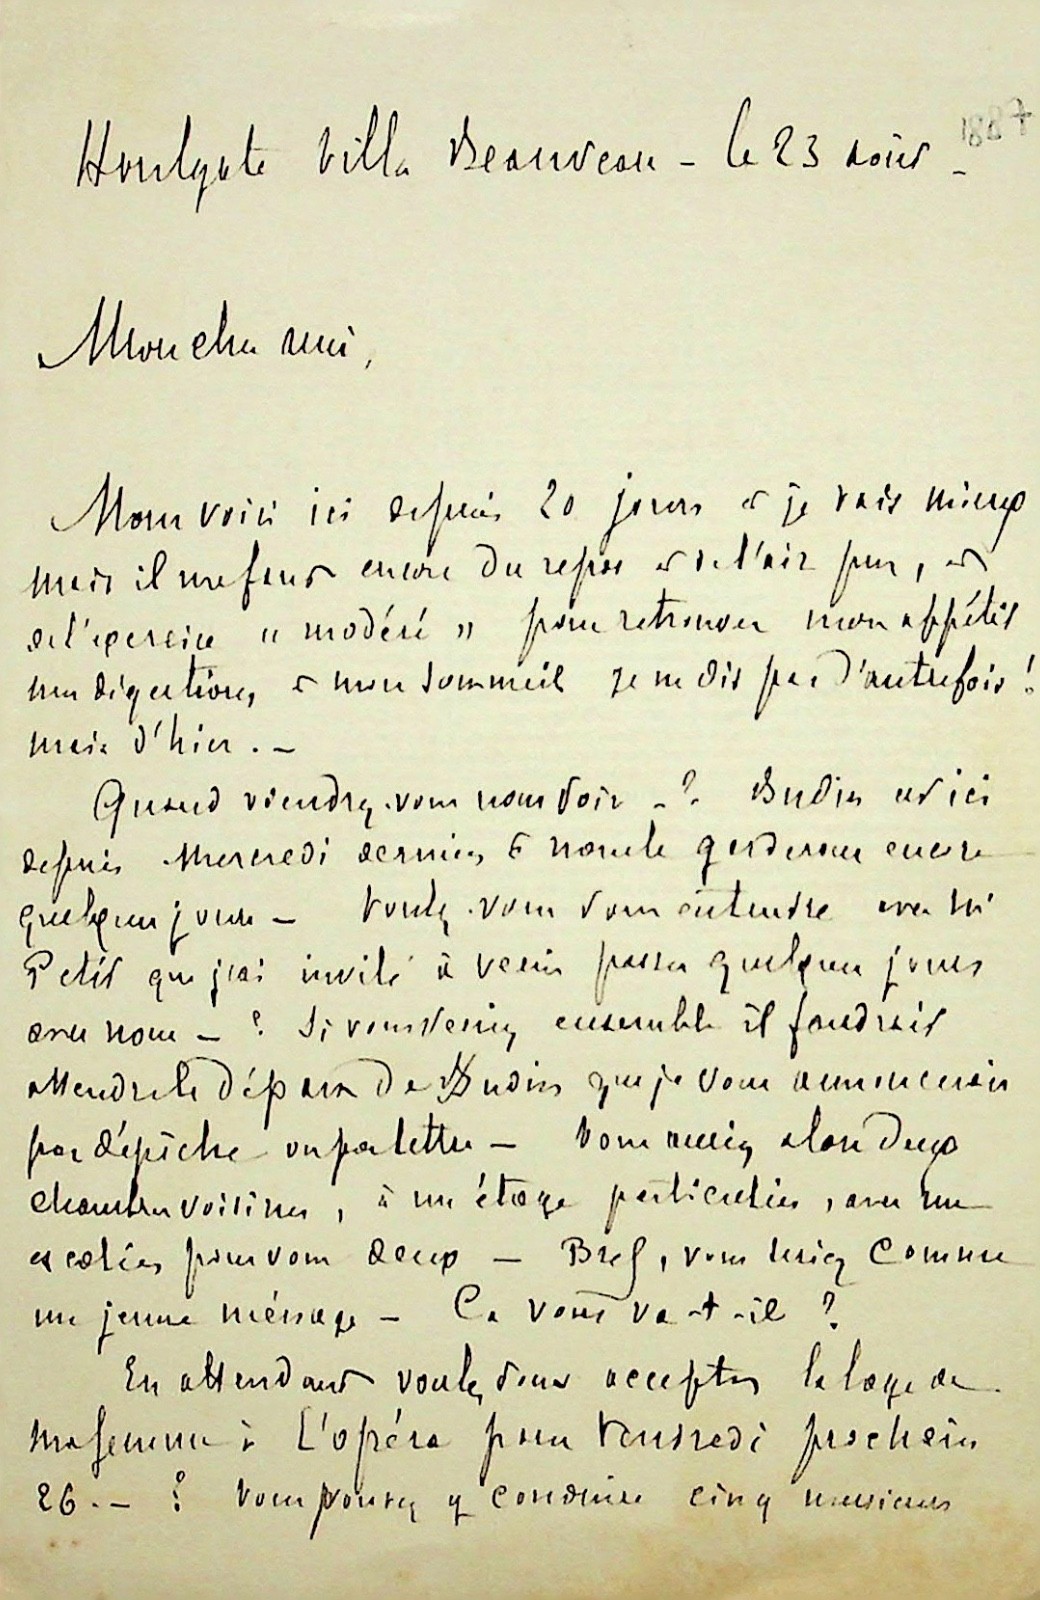 Houlgate Villa Beauveau - le 23 août - 1887
Mon cher ami,
Nous voici ici depuis 20 jours et je vais mieux
mais il me faut encore du repos et de l'air pur, et
de l'exercice " modéré " pour retrouver mon appétit
ma digestion, et mon sommeil je ne dis pas d'autrefois !
mais d'hier . -
Quand viendrez-vous nous voir - ? Budin est ici
depuis Mercredi dernier & nous le garderons encore
quelques jours - Voulez-vous vous entendre avec Mr
Petit que j'ai invité à venir passer quelques jours
avec nous - ? Si vous veniez ensemble il faudrait
attendre le départ de Budin que je vous annoncerais
par dépêche ou par lettre - Vous auriez alors deux
chambres voisines, à un étage particulier, avec un
escalier pour vous deux - Bref, vous seriez comme
un jeune ménage - Ca vous va-t-il ?
En attendant voulez vous accepter la loge de
ma femme à L'opéra pour Vendredi prochain
26 . - ? Vous pourrez y conduire cinq messieurs